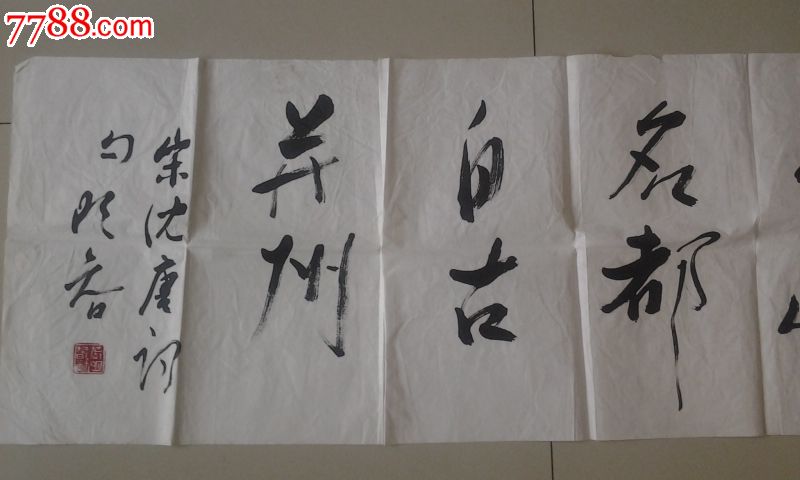 7788.com
名都
自古
并州
宋沈唐词
句